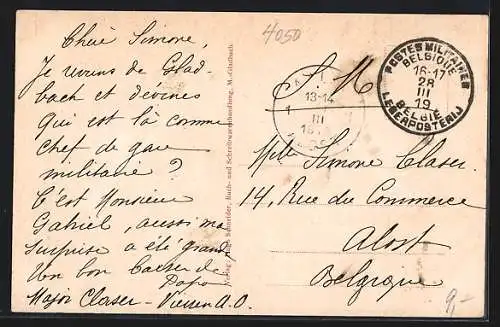 Cheie Simone,
Je reviens de Glad-
bach et devines
Qui est là comme
chef de gare
militaire ?
C'est Monsieur
Gabriel, aussi ma
surprise a été grande
Un bon baiser de
Papa
Major Claser - Viersen A.O.
4050
S. M.
POSTES MILITAIRES
BELGIQUE
16-17
28
III
19
BELGIE
LEGERPOSTERIJ
13-14
1
III
Melle Simone Claser
14, Rue du Commerce
Alost
Belgique
Schneider, Buch- und Schreibwarenhandlung, M.-Gladbach
9,-